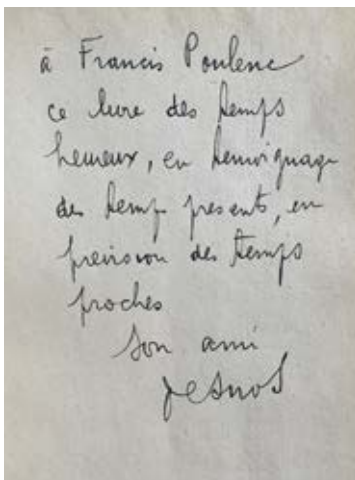 à Francis Poulenc
ce livre des temps
heureux, en temoignage
des temps presents, en
prevision des temps
proches
Son ami
Desnos